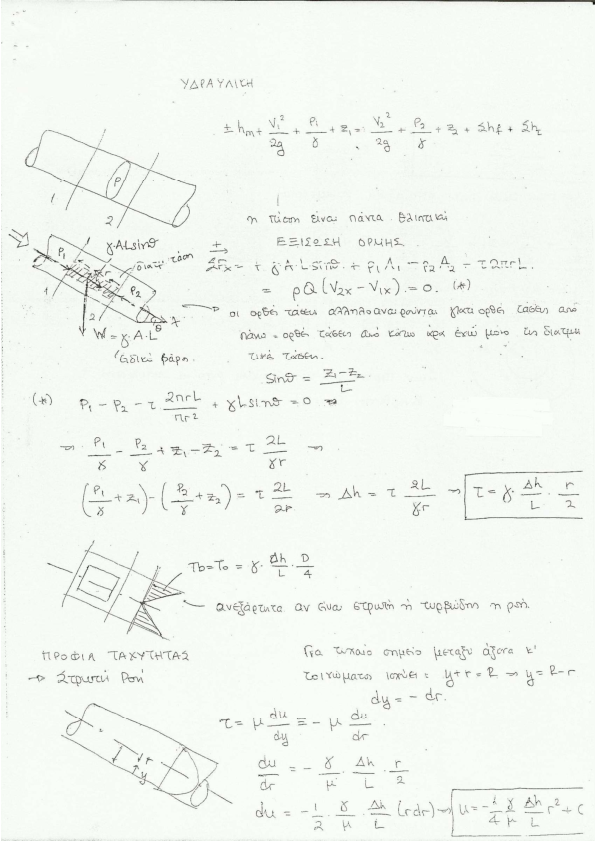 ΥΔΡΑΥΛΙΚΗ
± hm + V1²/2g + P1/γ + z1 = V2²/2g + P2/γ + z2 + Σhf + Σht
1
2
P
η πίεση είναι πάντα θλιπτική
ΕΞΙΣΩΣΗ ΟΡΜΗΣ
γ·ALsinθ
P1
διατμ τάση
r
P2
1
2
θ
x
W = γ·A·L
Ειδικό βάρος
ΣFx = + γ·A·L·sinθ + P1A1 - P2A2 - τ2πrL
= ρQ(V2x - V1x) = 0. (*)
οι ορθές τάσεις αλληλοαναιρούνται γιατί ορθές τάσεις από
πάνω = ορθές τάσεις από κάτω άρα έχω μόνο τις διατμη
τικές τάσεις.
sinθ = z1-z2/L
(*) P1 - P2 - τ 2πrL/πr² + γLsinθ = 0 ⇒
⇒ P1/γ - P2/γ + z1 - z2 = τ 2L/γr ⇒
(P1/γ + z1) - (P2/γ + z2) = τ 2L/2r ⇒ Δh = τ 2L/γr ⇒ τ = γ· Δh/L · r/2
τb = τo = γ· Δh/L · D/4
ανεξάρτητα αν είναι στρωτή ή τυρβώδης η ροή.
ΠΡΟΦΙΛ ΤΑΧΥΤΗΤΑΣ
→ Στρωτή Ροή
Για τυχαίο σημείο μεταξύ άξονα κ'
τοιχώματος ισχύει: y+r = R ⇒ y = R-r
dy = - dr.
r
y
τ = μ du/dy ≡ - μ du/dr
du/dr = - γ/μ · Δh/L · r/2
du = - 1/2 · γ/μ · Δh/L (rdr) ⇒ u = - 1/4 γ/μ Δh/L r² + C